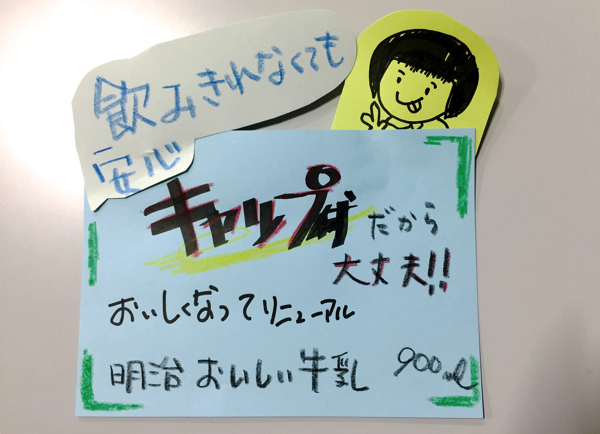 飲みきれなくても
安心
キャップ付だから
大丈夫!!
おいしくなってリニューアル
明治 おいしい牛乳 900ml